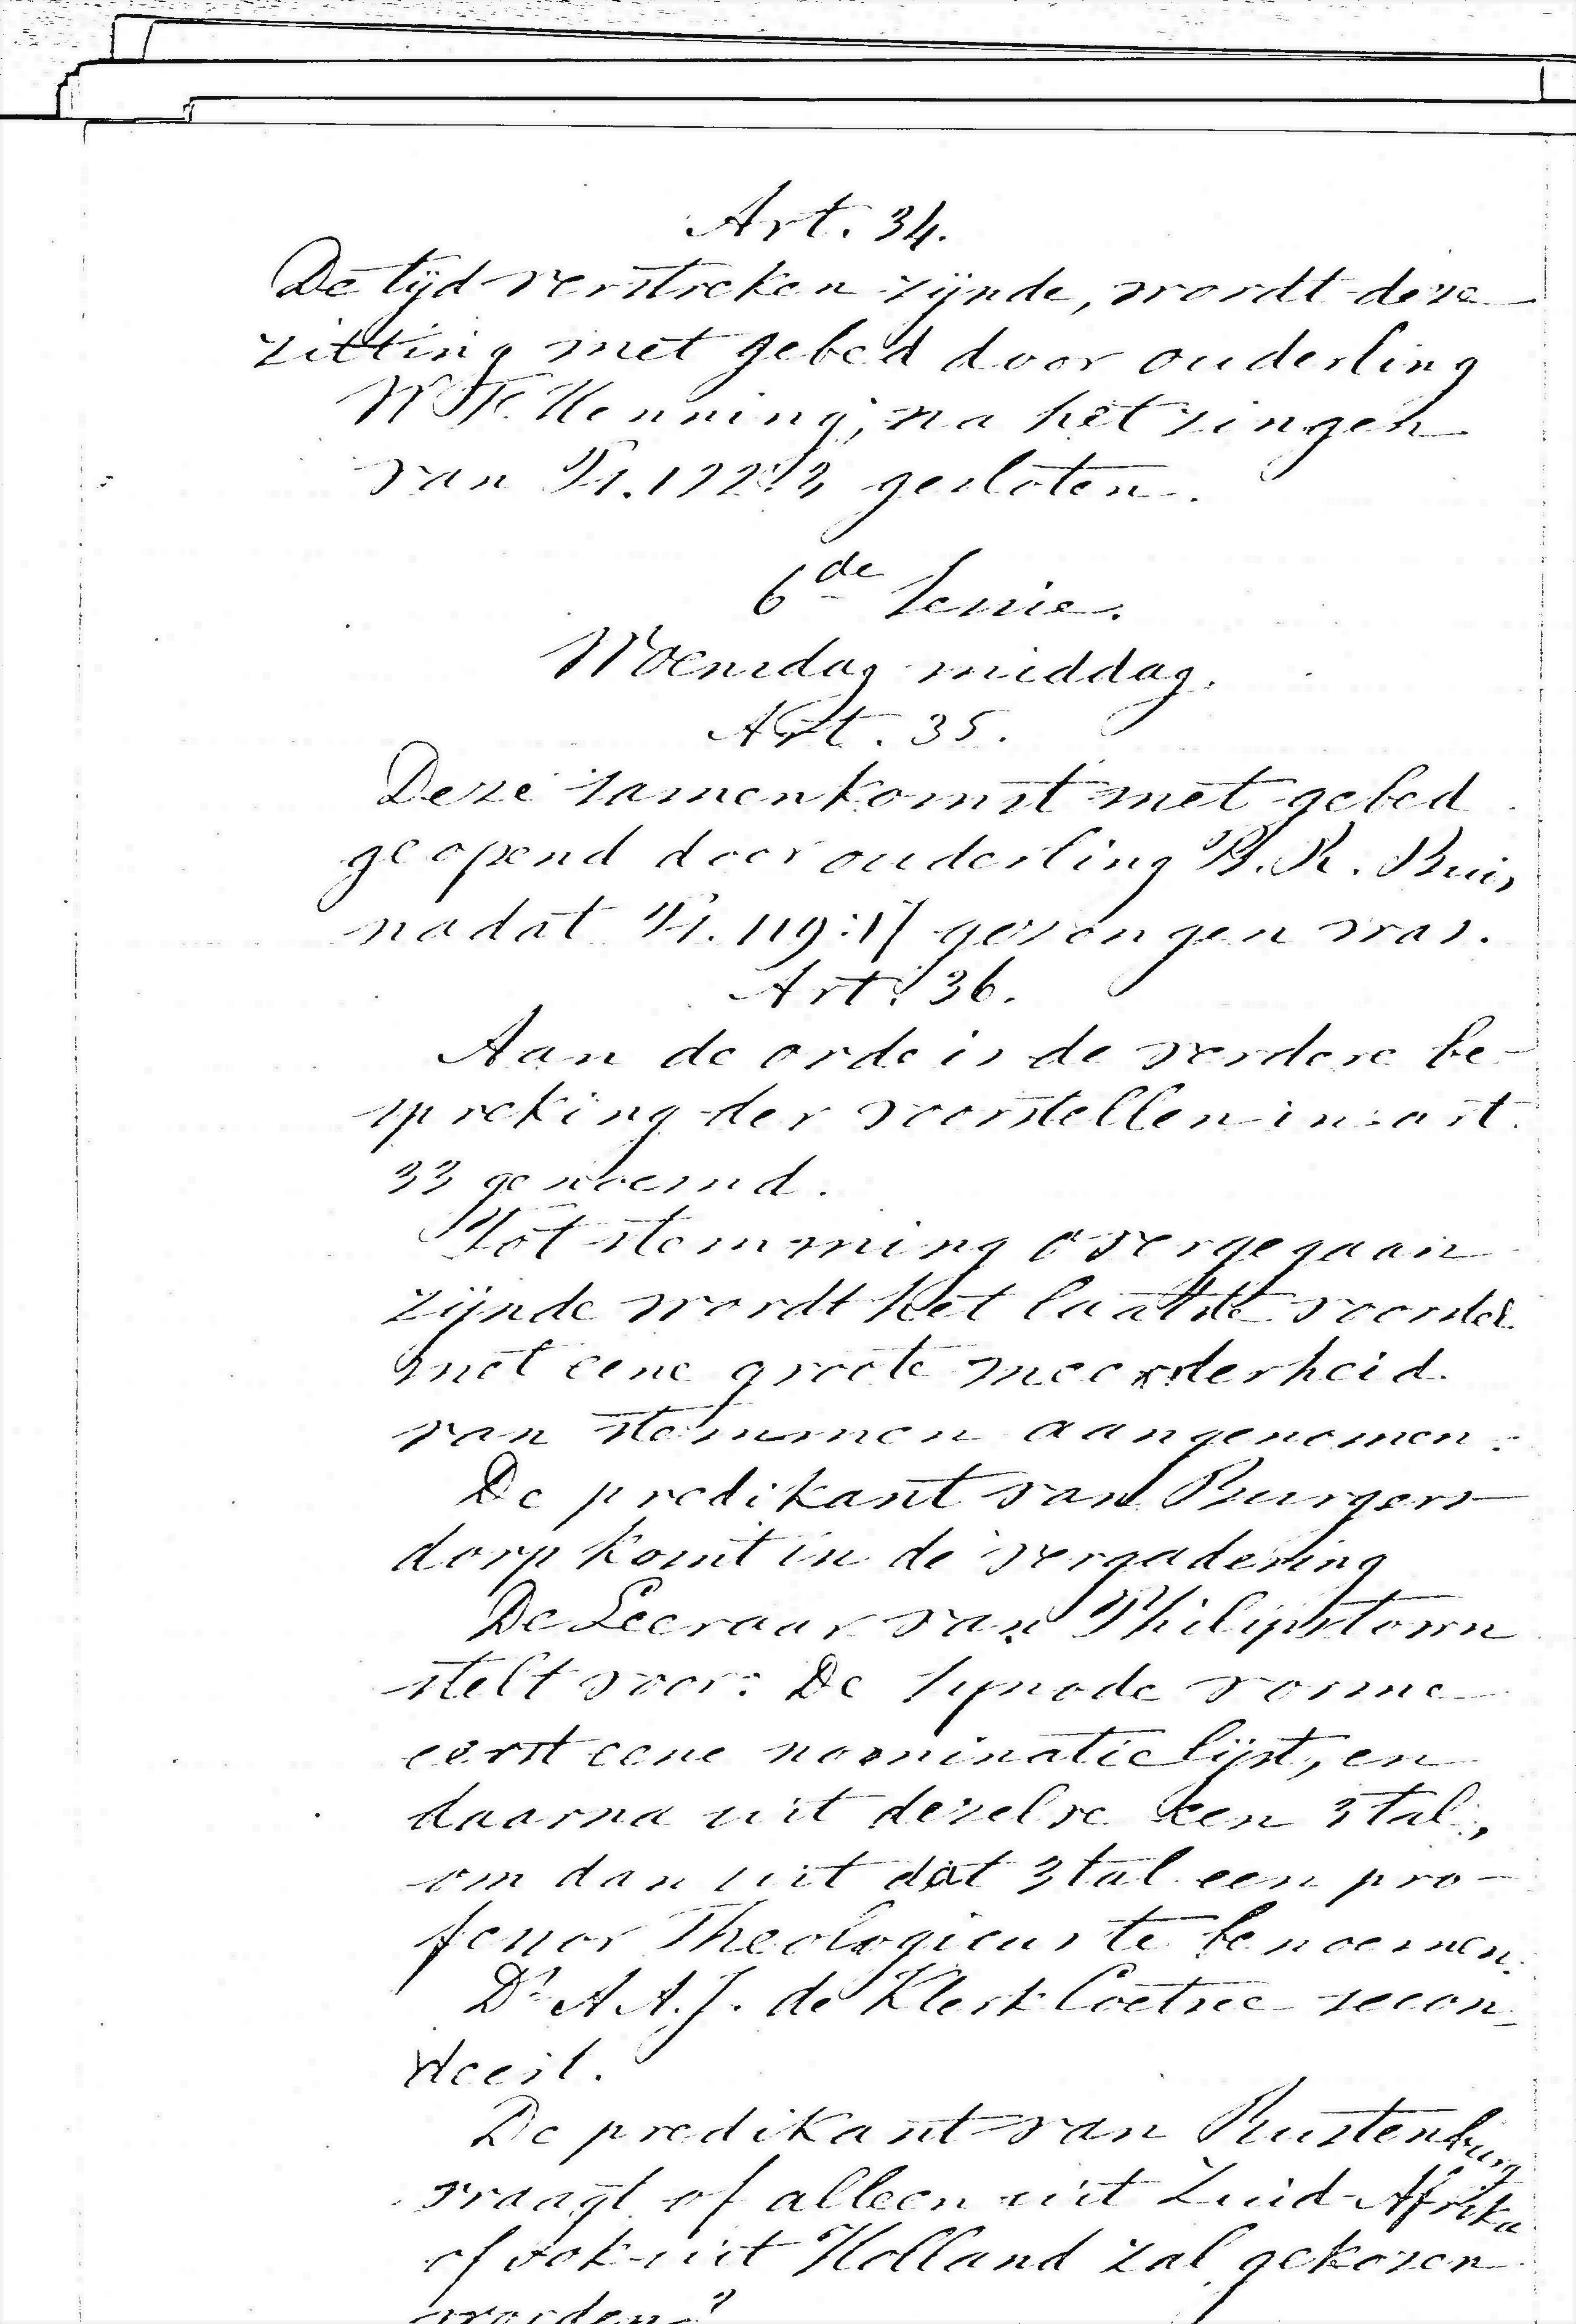 Art. 34.
De tijd verstreken zijnde, wordt deze
zitting met gebed door ouderling
W. F. Henning, na het zingen
van Ps. 122:3 gesloten.
6de Sessie.
Woensdag middag.
Art. 35.
Deze samenkomst met gebed
geopend door ouderling B. R. Buis
nadat Ps. 119:17 gezongen was.
Art. 36.
Aan de orde is de verdere be-
spreking der voorstellen in art.
33 genoemd.
Tot stemming overgegaan
zijnde wordt het laatste voorstel
met eene groote meerderheid
van stemmen aangenomen.
De predikant van Burgers
dorp komt in de vergadering
De Leeraar van Philipstown
stelt voor: De Synode vorme
eerst eene nominatie lijst, en
daarna uit dezelve een 3tal,
om dan uit dat 3tal een pro-
fessor Theologicus te benoemen.
Ds. A A. J. de Klerk Coetzee secon-
deert.
De predikant van Rustenburg
vraagt of alleen uit Zuid-Afrika
of ook uit Holland zal gekozen
worden?